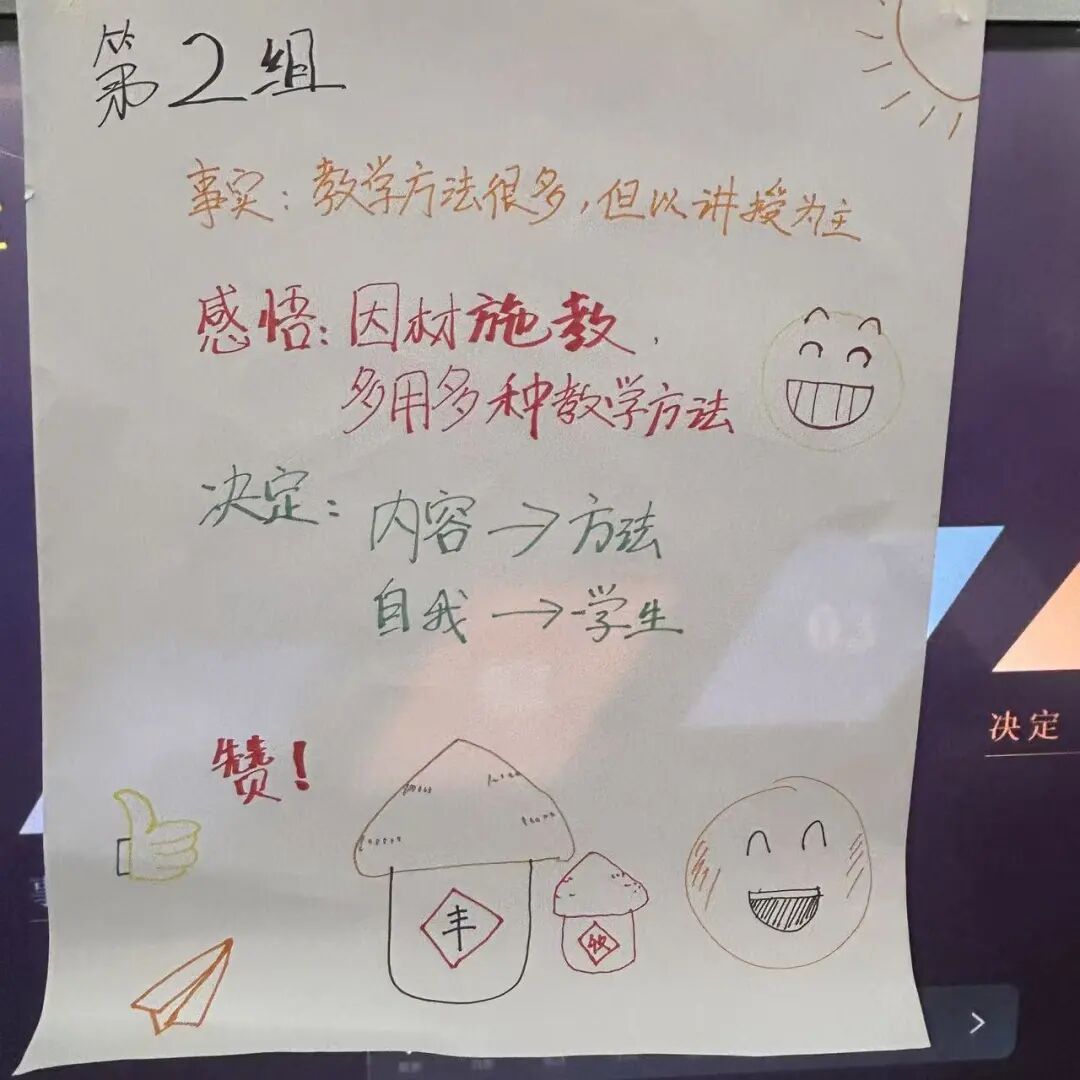 第2组
事实：教学方法很多，但以讲授为主
感悟：因材施教，
多用多种教学方法
决定：内容→方法
自我→学生
决定
赞！
丰